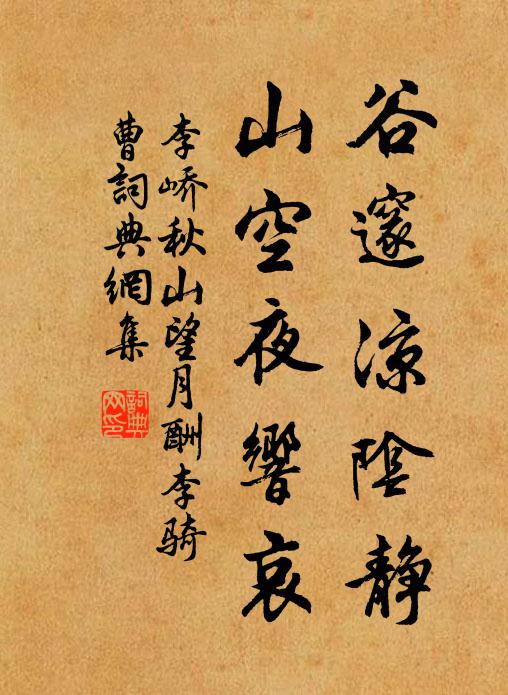 谷邃凉陰静
山空夜響哀
李峤秋山望月酬李骑
曹詞典網集
詞典网印